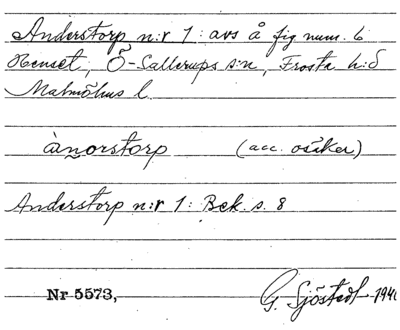 Anderstorp n:r 1: avs å fig num. 6
Ö-Sallerups s:n, Frosta h:d
Malmöhus l.
ànorstorp (acc. osäker)
Anderstorp n:r 1: Bek. s. 8
Nr 5573, G. Sjöstedt 1940